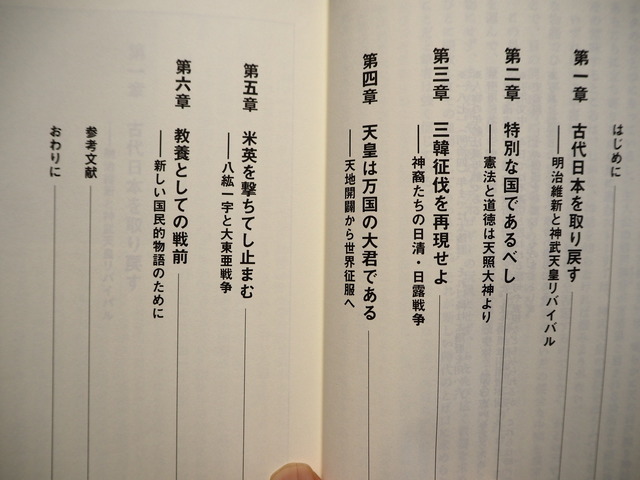 はじめに
第一章　古代日本を取り戻す
──明治維新と神武天皇リバイバル
第二章　特別な国であるべし
──憲法と道徳は天照大神より
第三章　三韓征伐を再現せよ
──神裔たちの日清・日露戦争
第四章　天皇は万国の大君である
──天地開闢から世界征服へ
第五章　米英を撃ちてし止まむ
──八紘一宇と大東亜戦争
第六章　教養としての戦前
──新しい国民的物語のために
参考文献
おわりに